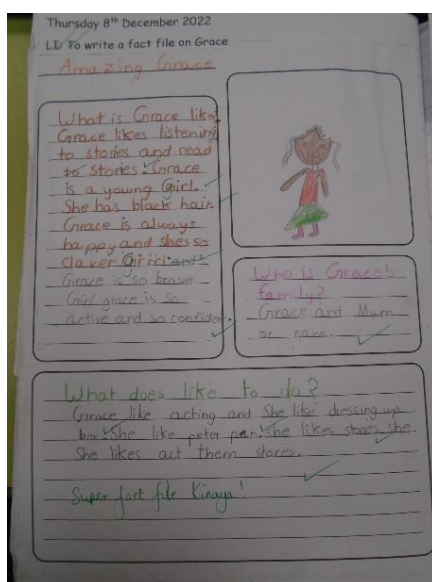 Thursday 8th December 2022
LI: To write a fact file on Grace
Amazing Grace
What is Grace like?
Grace likes listening
to stories and read
to stories. Grace
is a young Girl.
She has black hair.
Grace is always
happy and shes so
claver Girl and
Grace is so brave
Girl grace is so
active and so confident.
Who is Grace's
family?
Grace and Mum
nana.
What does like to do?
Grace like acting and She like dressing up
box. She like peter pan. she likes stories she
She likes act them stores.
Super fact file Kinaya!